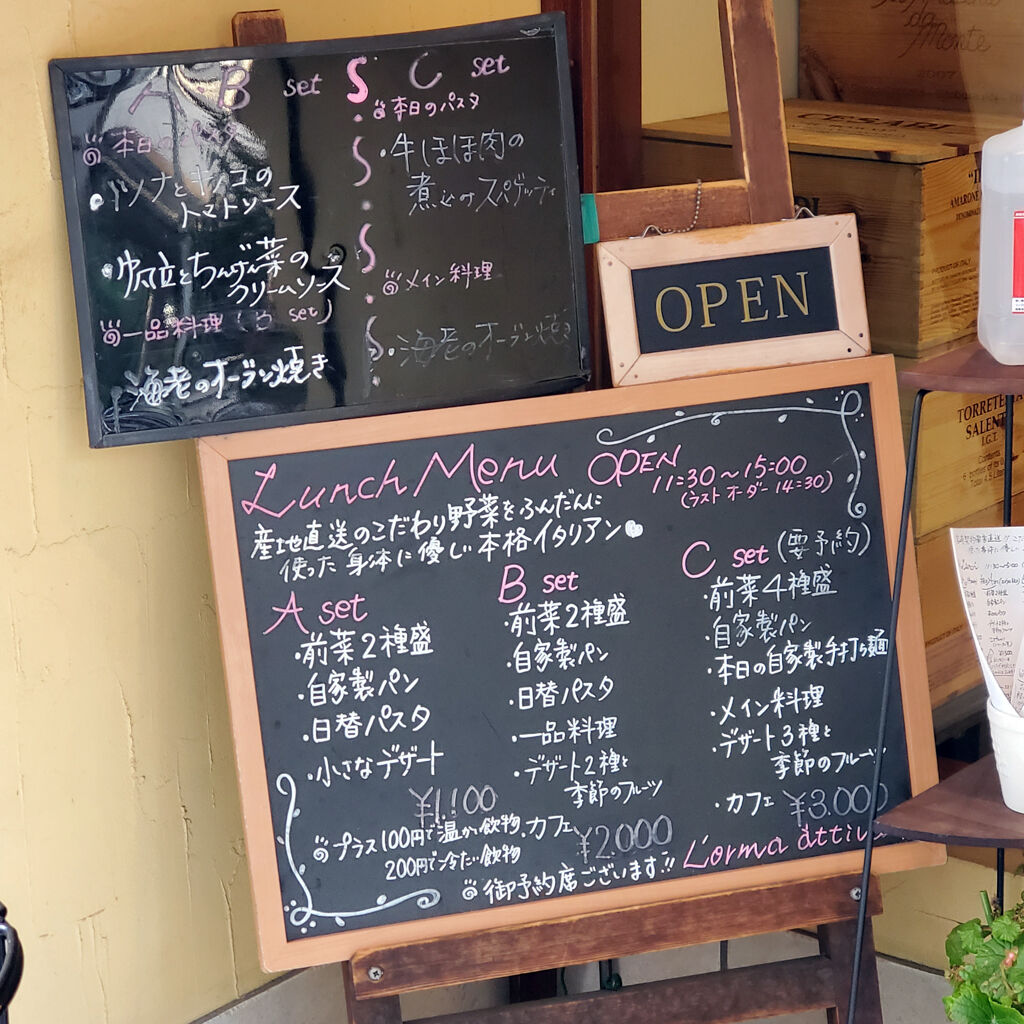 A・B set
本日のパスタ
・ツナとキノコの
トマトソース
・帆立とちんげん菜の
クリームソース
一品料理 (B set)
海老のオーブン焼き
C set
本日のパスタ
・牛ほほ肉の
煮込みスパゲッティ
メイン料理
・海老のオーブン焼き
OPEN
Lunch Menu OPEN
11:30～15:00
(ラストオーダー 14:30)
産地直送のこだわり野菜をふんだんに
使った身体に優しい本格イタリアン
A set
・前菜2種盛
・自家製パン
・日替パスタ
・小さなデザート
¥1.100
プラス100円で温かい飲物、
200円で冷たい飲物
B set
・前菜2種盛
・自家製パン
・日替パスタ
・一品料理
・デザート2種と
季節のフルーツ
・カフェ
¥2.000
C set (要予約)
・前菜4種盛
・自家製パン
・本日の自家製手打ち麺
・メイン料理
・デザート3種と
季節のフルーツ
・カフェ ¥3.000
御予約席ございます!!
L'orma
Monte
2007
CESARI
AMARONE
PRODUCT OF ITALY
TORRETE
SALENT
I.G.T.
Contents